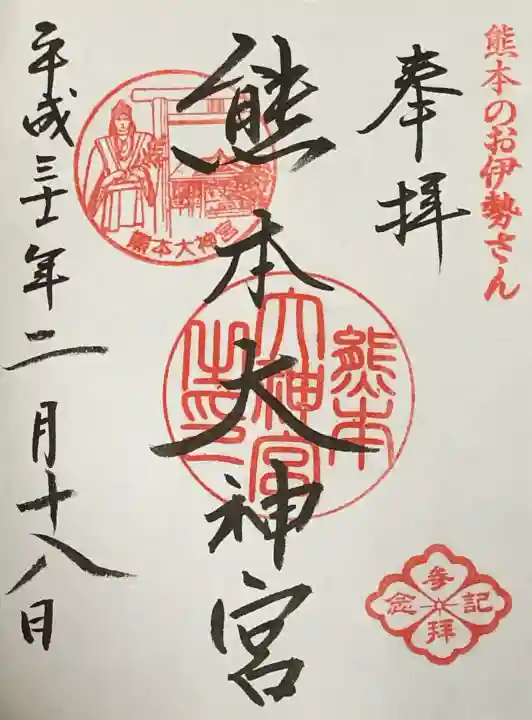 熊本のお伊勢さん
奉拝
熊本大神宮
熊本
大神宮
之印
熊本大神宮
平成三十一年二月十八日
参拝
記念